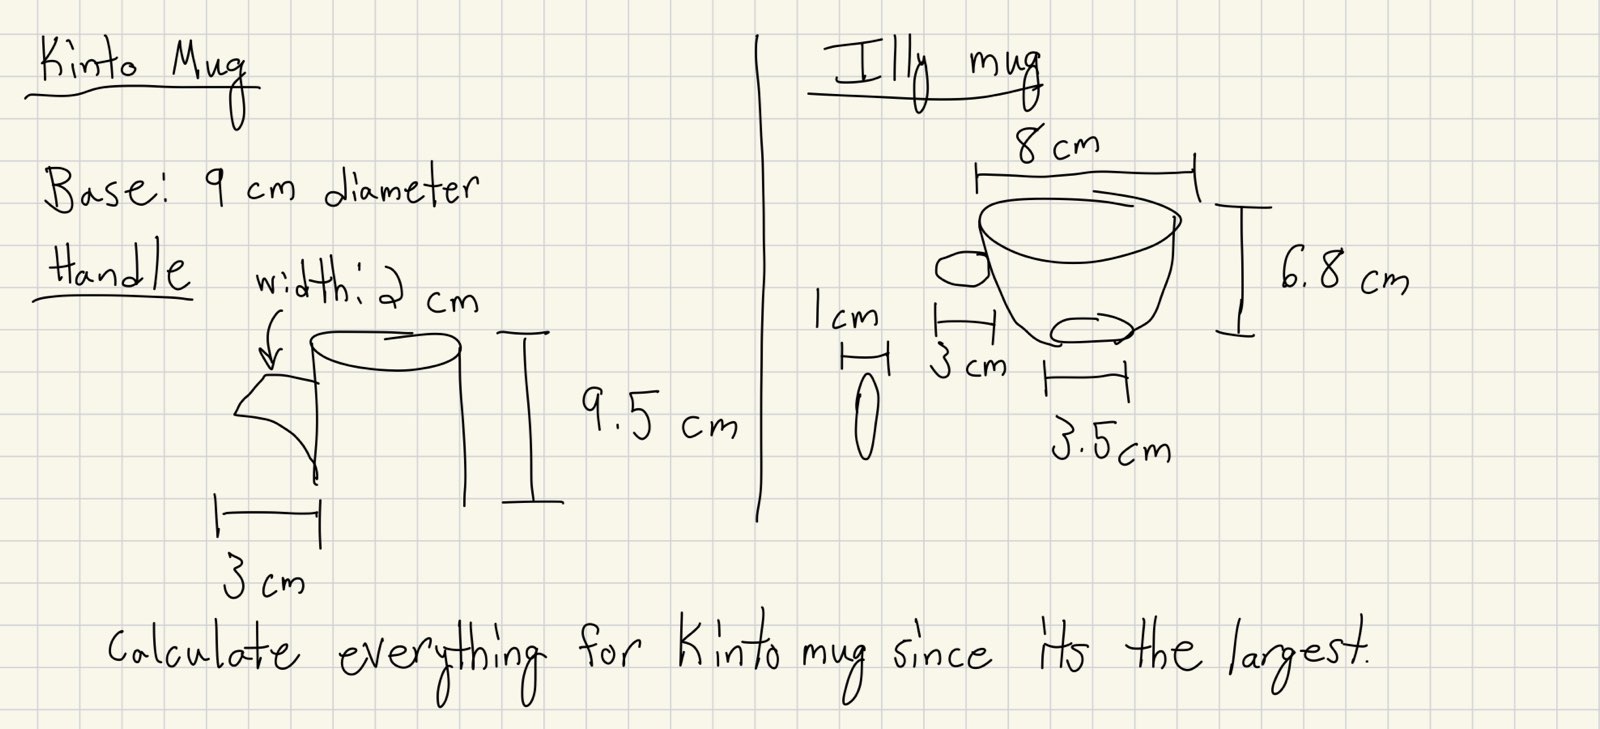 Kinto Mug
Base: 9 cm diameter
Handle width: 2 cm
9.5 cm
3 cm
Illy mug
8 cm
6.8 cm
1 cm
3 cm
3.5 cm
Calculate everything for Kinto mug since its the largest.